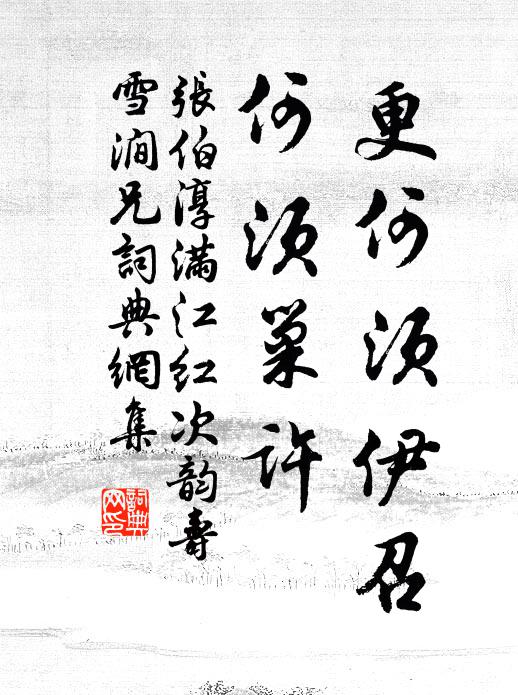 更何須伊召
何須巢許
張伯淳滿江紅次韵壽
雪澗兄詞典網集
詞典
网印